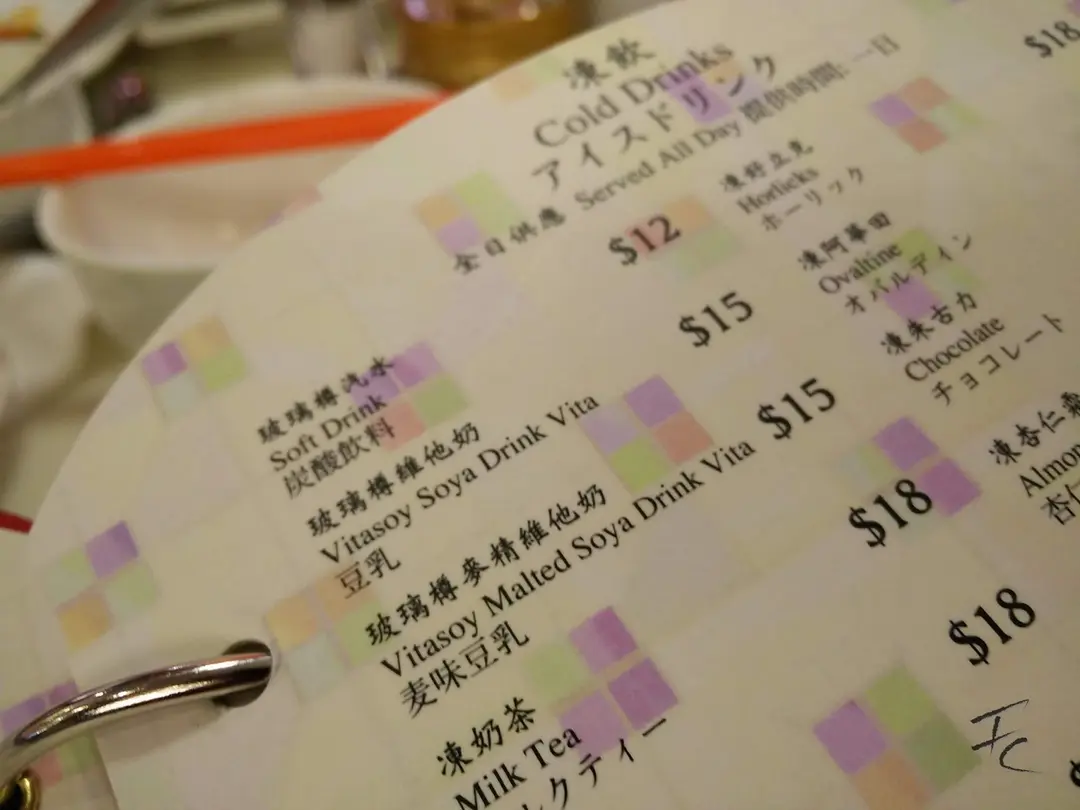 凍飲
Cold Drinks
アイスドリンク
全日供應 Served All Day 提供時間: 一日
玻璃樽汽水
Soft Drink
炭酸飲料
$12
玻璃樽維他奶
Vitasoy Soya Drink Vita
豆乳
$15
玻璃樽麥精維他奶
Vitasoy Malted Soya Drink Vita
麦味豆乳
$15
凍奶茶
Milk Tea
ルクティー
$18
$18
凍好立克
Horlicks
ホーリック
凍阿華田
Ovaltine
オバルディン
凍朱古力
Chocolate
チョコレート
凍杏仁霜
Almon
杏仁
$18